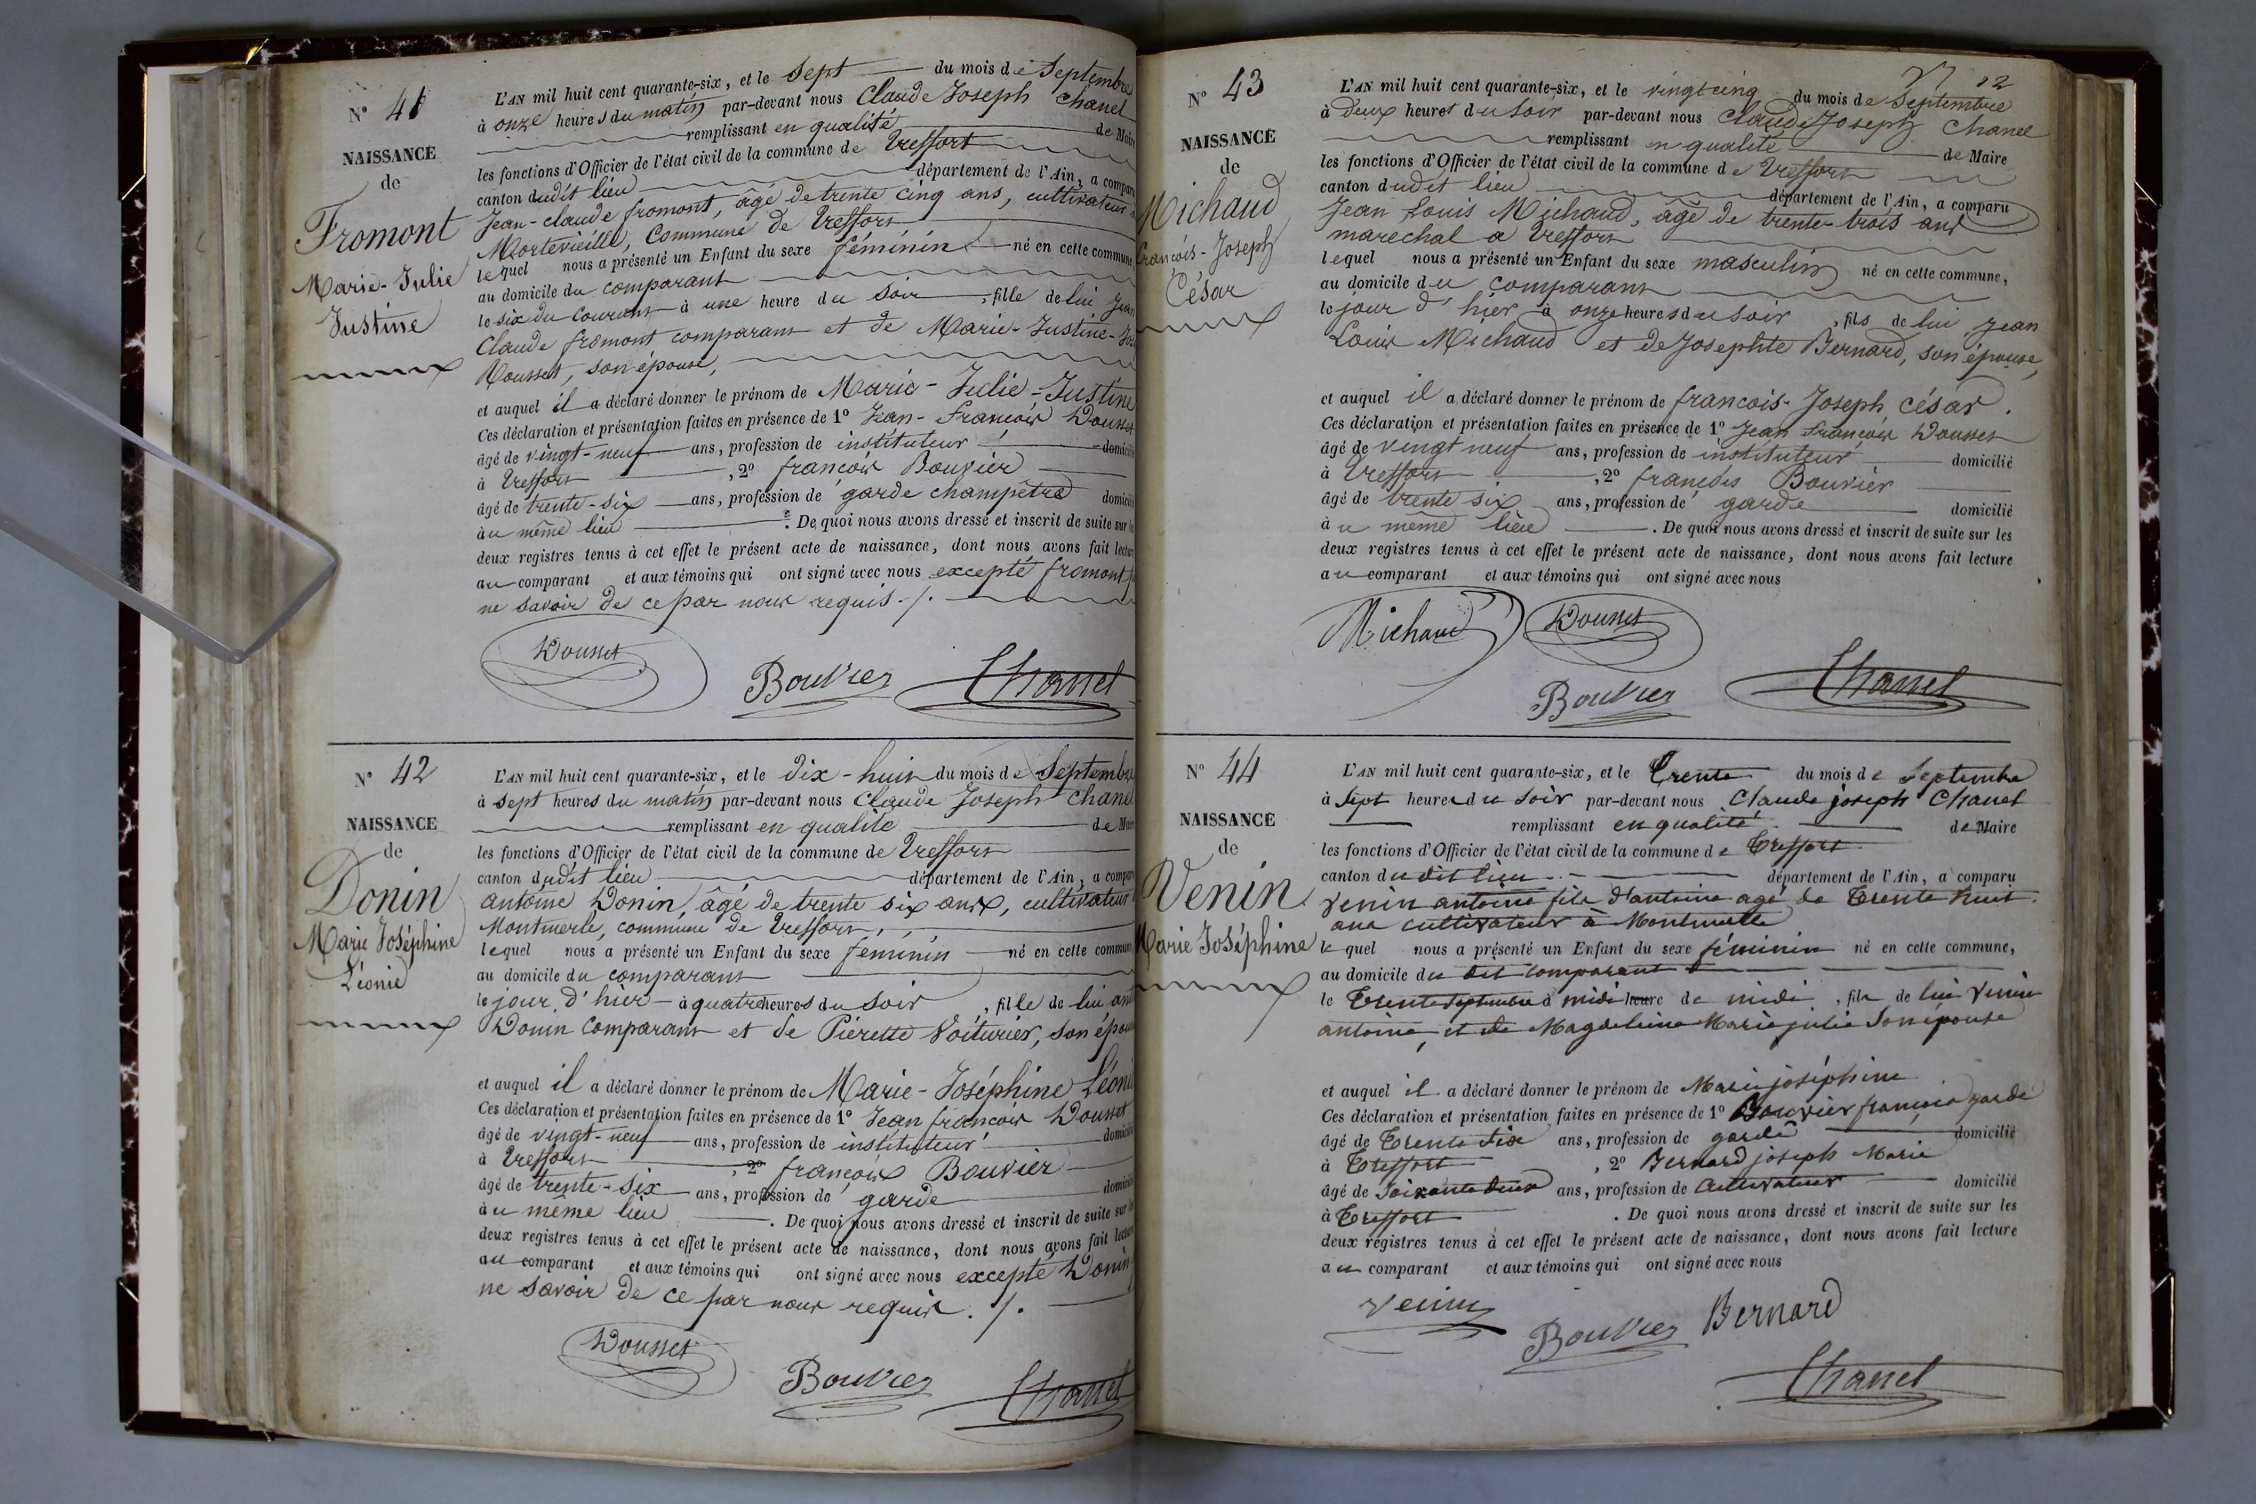 N° 41
NAISSANCE
de
Fromont
Marie-Julie
Justine
L'AN mil huit cent quarante-six, et le sept du mois de Septembre
à onze heures du matin par-devant nous Claude Joseph Chanel
remplissant en qualité de Maire
les fonctions d'Officier de l'état civil de la commune de Treffort
canton dudit lieu département de l'Ain, a comparu
Jean-claude fromont, âgé de trente cinq ans, cultivateur
Mortevieille, Commune de Treffort
lequel nous a présenté un Enfant du sexe féminin né en cette commune,
au domicile du comparant
le six du courant à une heure du soir, fille de lui Jean
Claude fromont comparant et de Marie-Justine-
Rousset, son épouse,
et auquel il a déclaré donner le prénom de Marie-Julie-Justine
Ces déclaration et présentation faites en présence de 1° Jean-francois Dousset
âgé de vingt-neuf ans, profession de instituteur domicilié
à Treffort, 2° francois Bouvier
âgé de trente-six ans, profession de garde champêtre domicilié
au même lieu. De quoi nous avons dressé et inscrit de suite sur les
deux registres tenus à cet effet le présent acte de naissance, dont nous avons fait lecture
au comparant et aux témoins qui ont signé avec nous excepté fromont
ne savoir de ce par nous requis ./.
Dousset
Bouvier Chanel
N° 42
NAISSANCE
de
Donin
Marie Joséphine
Léonie
L'AN mil huit cent quarante-six, et le dix-huit du mois de Septembre
à sept heures du matin par-devant nous Claude Joseph Chanel
remplissant en qualité de Maire
les fonctions d'Officier de l'état civil de la commune de Treffort
canton dudit lieu département de l'Ain, a comparu
antoine Donin, âgé de trente six ans, cultivateur
Montmerle, commune de Treffort,
lequel nous a présenté un Enfant du sexe féminin né en cette commune
au domicile du comparant
le jour d'hier à quatre heures du soir, fille de lui ant
Donin comparant et de Piérette Voiturier, son épouse
et auquel il a déclaré donner le prénom de Marie-Joséphine Léonie
Ces déclaration et présentation faites en présence de 1° Jean francois Dousset
âgé de vingt-neuf ans, profession de instituteur domicilié
à Treffort, 2° françois Bouvier
âgé de trente-six ans, profession de garde domicilié
au même lieu. De quoi nous avons dressé et inscrit de suite sur les
deux registres tenus à cet effet le présent acte de naissance, dont nous avons fait lecture
au comparant et aux témoins qui ont signé avec nous excepté Donin
ne savoir de ce par nous requis ./.
Dousset
Bouvier Chanel
12
N° 43
NAISSANCE
de
Michaud
françois-Joseph
César
L'AN mil huit cent quarante-six, et le vingt cinq du mois de Septembre
à deux heures du soir par-devant nous Claude Joseph Chanel
remplissant en qualité de Maire
les fonctions d'Officier de l'état civil de la commune de Treffort
canton dudit lieu département de l'Ain, a comparu
Jean Louis Michaud, âgé de trente-trois ans
marechal a Treffort
lequel nous a présenté un Enfant du sexe masculin né en cette commune,
au domicile du comparant
le jour d'hier à onze heures du soir, fils de lui Jean
Louis Michaud et de Josephte Bernard, son épouse,
et auquel il a déclaré donner le prénom de francois-Joseph César.
Ces déclaration et présentation faites en présence de 1° Jean francois Dousset
âgé de vingt neuf ans, profession de instituteur domicilié
à Treffort, 2° francois Bouvier
âgé de trente six ans, profession de garde domicilié
au même lieu. De quoi nous avons dressé et inscrit de suite sur les
deux registres tenus à cet effet le présent acte de naissance, dont nous avons fait lecture
au comparant et aux témoins qui ont signé avec nous
Michaud Dousset
Bouvier Chanel
N° 44
NAISSANCE
de
Venin
Marie Joséphine
L'AN mil huit cent quarante-six, et le Trente du mois de Septembre
à Sept heures du soir par-devant nous Claude joseph Chanel
remplissant en qualité de Maire
les fonctions d'Officier de l'état civil de la commune de Treffort
canton du dit lieu département de l'Ain, a comparu
venin antoine fils d'antoine agé de Trente huit
ans cultivateur à Montmerle
lequel nous a présenté un Enfant du sexe féminin né en cette commune,
au domicile du dit comparant
le Trente Septembre à midi heure de midi, fille de lui venin
antoine, et de Magdeleine Marie julie Son épouse
et auquel il a déclaré donner le prénom de Marie joséphine
Ces déclaration et présentation faites en présence de 1° Bouvier françois garde
âgé de Trente Six ans, profession de garde domicilié
à Treffort, 2° Bernard joseph Marie
âgé de Soixante deux ans, profession de Cultivateur domicilié
à Treffort. De quoi nous avons dressé et inscrit de suite sur les
deux registres tenus à cet effet le présent acte de naissance, dont nous avons fait lecture
au comparant et aux témoins qui ont signé avec nous
Venin
Bouvier Bernard
Chanel